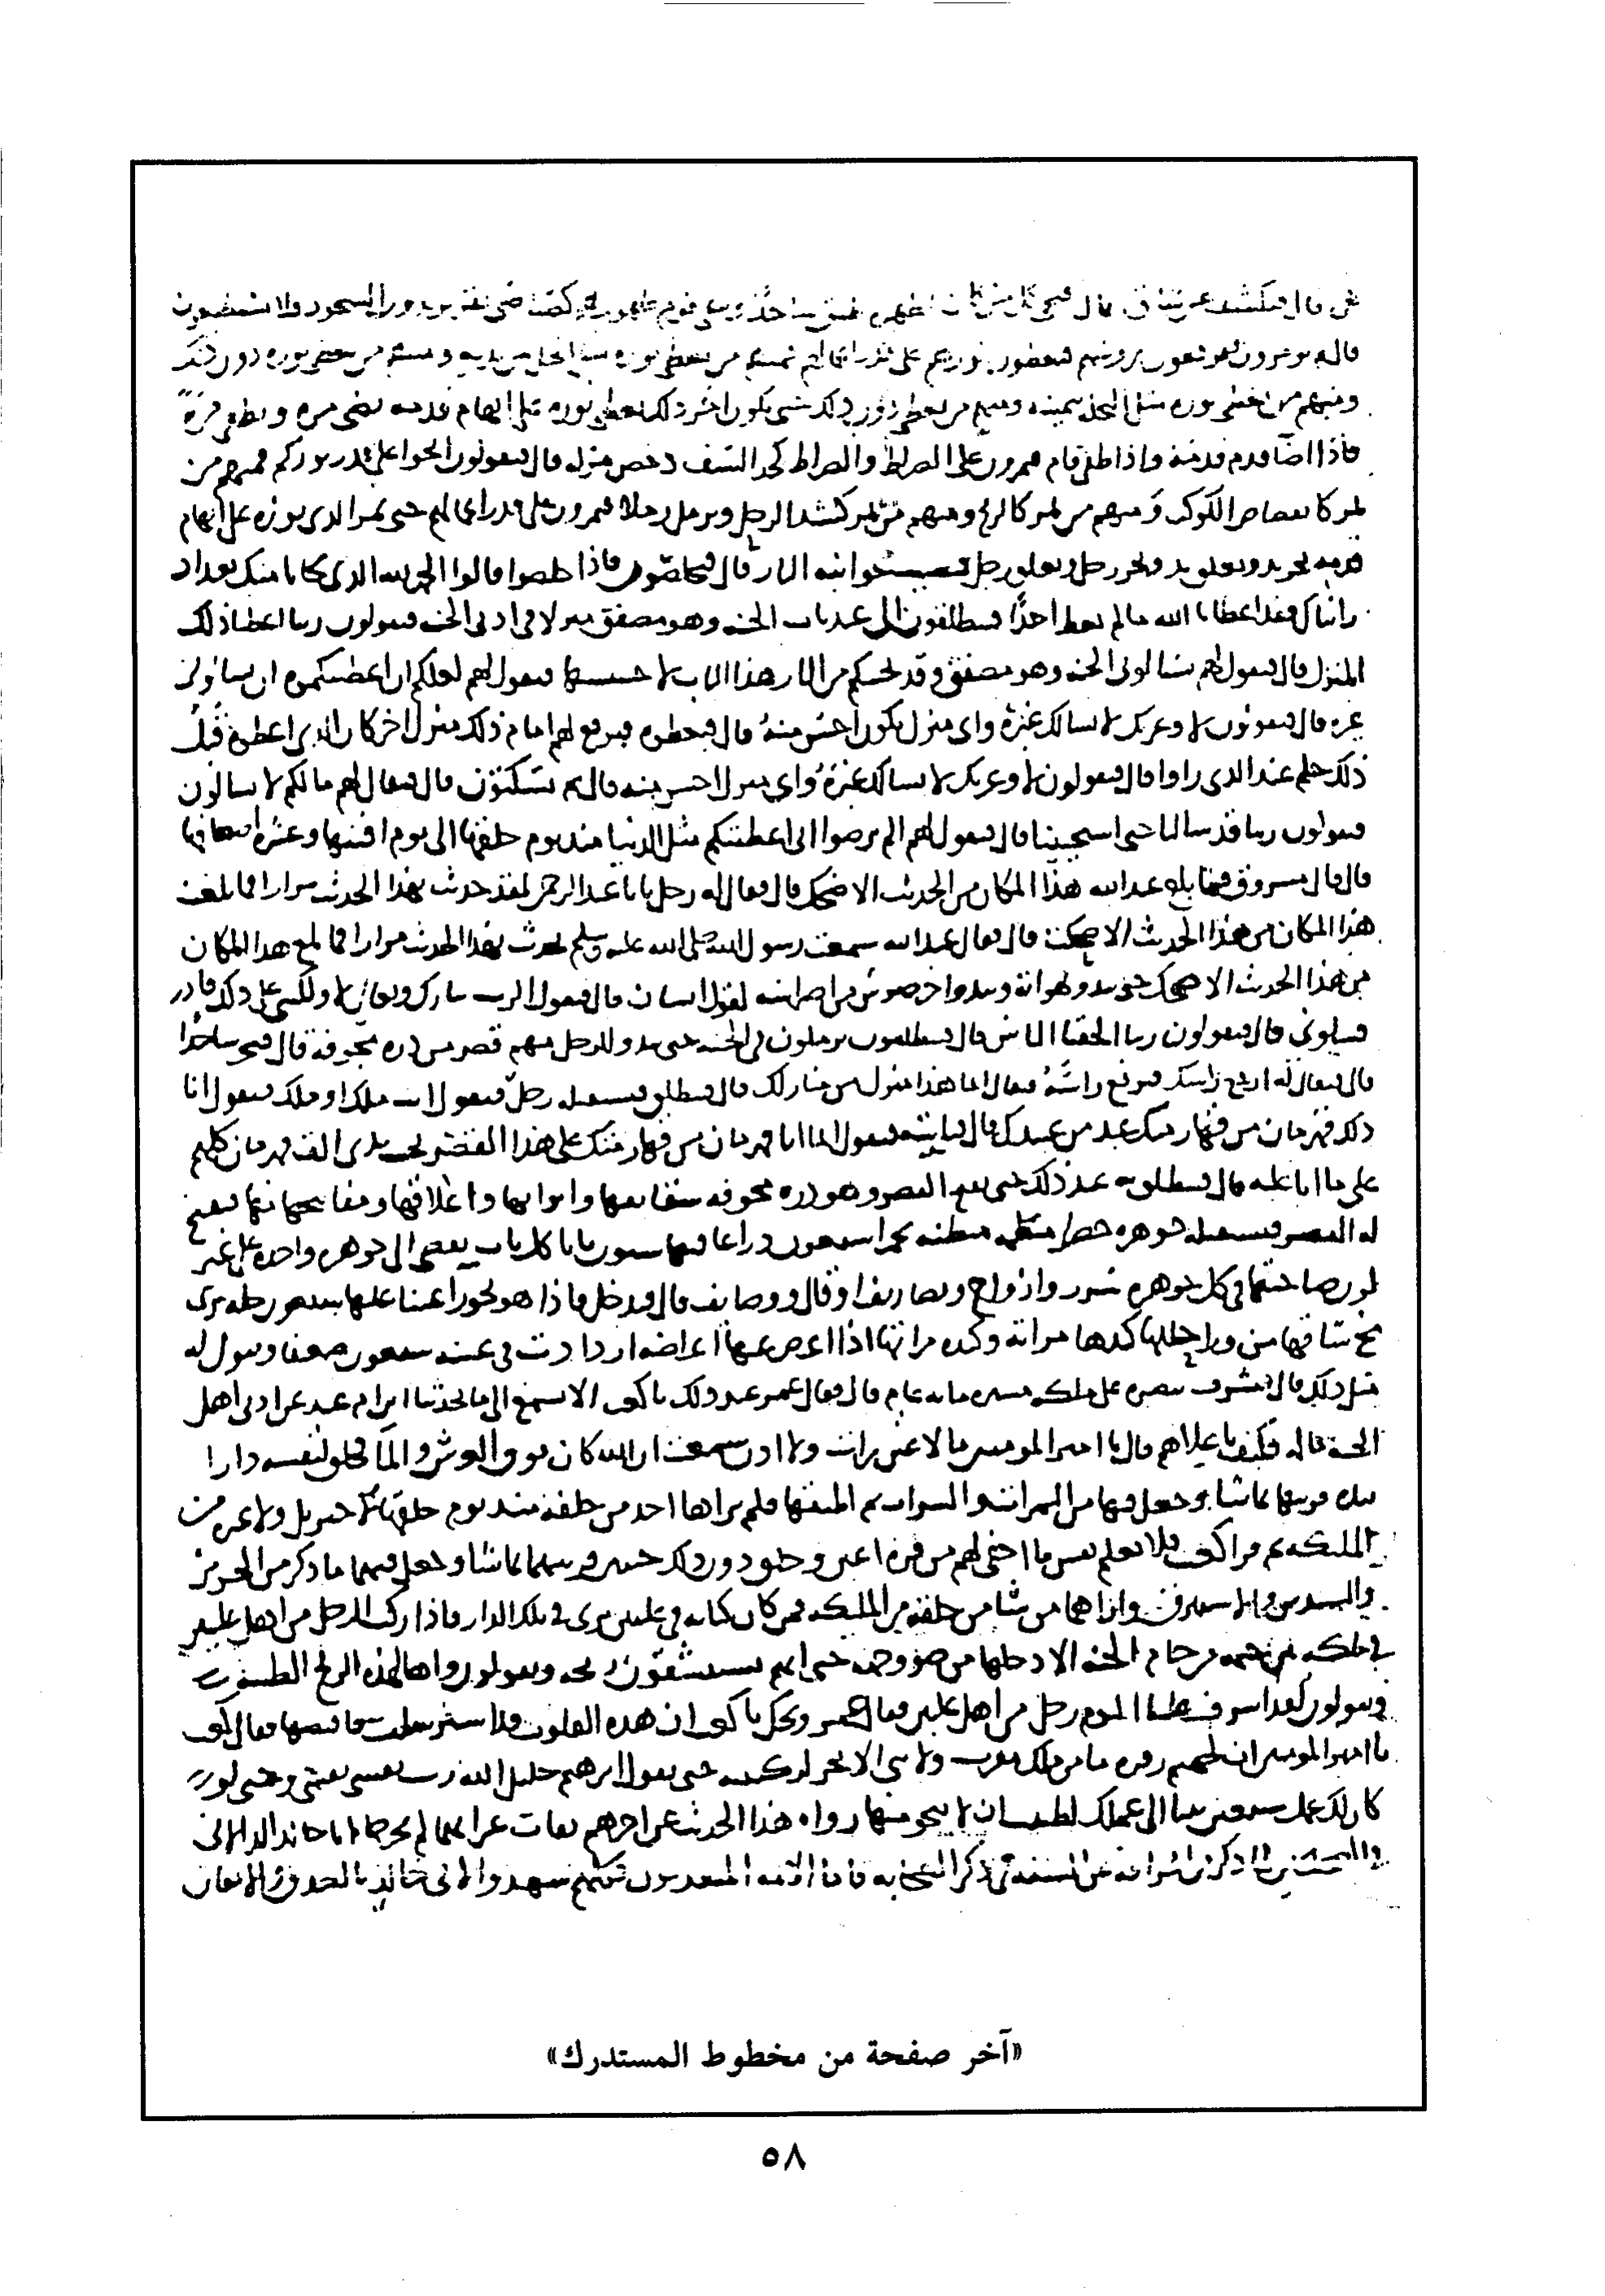 قال فيكشف عن ساق قال فيخر كل من كان لظهره طبق ساجدا ويبقى قوم ظهورهم كصياصي البقر يريدون السجود فلا يستطيعون
قال ثم يؤمرون فيرفعون رءوسهم فيعطون نورهم على قدر اعمالهم فمنهم من يعطى نوره مثل الجبل بين يديه ومنهم من يعطى نوره دون ذلك
ومنهم من يعطى نوره مثل النخلة بيمينه ومنهم من يعطى دون ذلك حتى يكون اخر ذلك يعطى نوره على ابهام قدمه يضي مره ويطفى مرة
فاذا اضا قدم قدمه واذا طفى قام فيمرون على الصراط والصراط كحد السيف دحض مزله قال فيقولون انجوا على قدر نوركم فمنهم من
يمر كانقضاض الكوكب ومنهم من يمر كالريح ومنهم من يمر كشد الرجل ويرمل رملا فيمرون على قدر اعمالهم حتى يمر الذي نوره على ابهام
قدمه يجر يد ويعلق يد ويجر رجل ويعلق رجل فتصيب جوانبه النار قال فيخلصون فاذا خلصوا قالوا الحمد لله الذي نجانا منك بعد اذ
رايناك فقد اعطانا الله ما لم يعط احدا فينطلقون الى عند باب الجنه وهو مصفق منزلا في ادنى الجنه فيقولون ربنا اعطنا ذلك
المنزل قال فيقول لهم تسالوني الجنه وهو مصفق وقد نجيتكم من النار هذا الباب لا حسيسها فيقول لهم لعلكم ان اعطيتكموه ان تسالوني
غيره قال فيقولون لا وعزتك لا نسالك غيره واي منزل يكون احسن منه قال فيعطوه فيرفع لهم امام ذلك منزل اخر كان الذي اعطوه قبل
ذلك حلم عند الذي راوا قال فيقولون لا وعزتك لا نسالك غيره واي منزل احسن منه قال ثم يسكتون قال فيقال لهم ما لكم لا تسالون
فيقولون ربنا قد سالنا حتى استحيينا قال فيقول لهم الم ترضوا اني اعطيتكم مثل الدنيا منذ يوم خلقتها الى يوم افنيتها وعشرة اضعافها
قال قال مسروق فما بلغ عبد الله هذا المكان من الحديث الا ضحك قال فقال له رجل يا ابا عبد الرحمن لقد حدثت بهذا الحديث مرارا فما بلغت
هذا المكان من هذا الحديث الا ضحكت قال فقال عبد الله سمعت رسول الله صلى الله عليه وسلم يحدث بهذا الحديث مرارا فما بلغ هذا المكان
من هذا الحديث الا ضحك حتى تبدو لهواته ويبدوا اخر ضرس من اضراسه لقول الانسان قال فيقول الرب تبارك وتعالى لا ولكني على ذلك قادر
فسلوني قال فيقولون ربنا الحقنا الناس قال فينطلقون يرملون في الجنه حتى يبدو للرجل منهم قصر من دره مجوفة قال فيخر ساجدا
قال فيقال له ارفع راسك فيرفع راسه فيقال انما هذا منزل من منازلك قال فينطلق فيستقبله رجل فيقول انت ملك او ملك فيقول انا
ذلك قهرمان من قهارمتك عبد من عبيدك قال فياتيه فيقول انما انا قهرمان من قهارمتك على هذا القصر تحت يدي الف قهرمان كلهم
على ما انا عليه قال فينطلق به عند ذلك حتى يفتح القصر وهو دره مجوفه سقايفها وابوابها واغلاقها ومفاتيحها منها فيفتح
له القصر فيستقبله جوهره خضرا مبطنه بحمرا سبعون ذراعا فيها ستون بابا كل باب يفضي الى جوهره واحده على غير
لون صاحبتها في كل جوهره سرر وازواج ونصاريف او قال ووصايف قال فيدخل فاذا هو بحورا عينا عليها سبعون حله يرى
مخ ساقها من ورا حللها كبدها مراته وكبده مراتها اذا اعرض عنها اعراضه ازدادت في عينه سبعين ضعفا ويقول له
مثل ذلك قال فيشرف ببصره على ملكه مسيره مايه عام قال فقال عمر عند ذلك يا كعب الا تسمع الى ما يحدثنا ابن ام عبد عن ادنى اهل
الجنة ماله فكيف باعلاهم قال يا امير المومنين ما لا عين رات ولا اذن سمعت ان الله كان فوق العرش والما فخلق لنفسه دارا
بيده فزينها بما شا وجعل فيها من الثمرات والشراب ثم اطبقها فلم يراها احد من خلقه منذ يوم خلقها لا جبريل ولا غيره من
الملئكه ثم قرا كعب فلا تعلم نفس ما اخفي لهم من قرة اعين وخلق دون ذلك جنتين فزينهما بما شا وجعل فيهما ما ذكر من الحرير
والسندس والاستبرق واراهما من شا من خلقه من الملئكه فمن كان كتابه في عليين يرى في تلك الدار فاذا ركب الرجل من اهل عليين
في ملكه لم يبق خيمه من خيام الجنه الا دخلها من ضوء وجهه حتى انهم يستنشقون ريحه ويقولون واها لهذه الريح الطيبه
ويقولون لقد اشرف علينا اليوم رجل من اهل عليين فقال عمر ويحك يا كعب ان هذه القلوب قد استرسلت فاقبضها فقال كعب
يا امير المومنين ان لجهنم زفره ما من ملك مقرب ولا نبي الا يخر لركبتيه حتى يقول ابرهيم خليل الله رب نفسي نفسي وحتى لو
كان لك عمل سبعين نبيا الى عملك لظننت ان لا تنجو منها رواه هذا الحديث عن اخرهم ثقات غير انهما لم يخرجا ابا خالد الدالاني
في الصحيحين لما ذكر من انحرافه عن السنه في ذكر الصحابه فاما الائمه المتقدمون فكلهم شهدوا لابي خالد بالصدق والاتقان
«آخر صفحة من مخطوط المستدرك»
٥٨